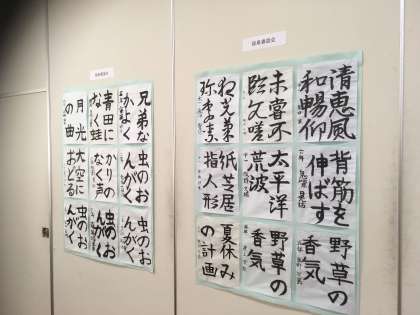 清恵風
和暢仰
未嘗不
臨文嗟
背筋を
伸ばす
太平洋
荒波
紙芝居
指人形
野草の
香気
野草の
香気
夏休み
の計画
兄弟な
かよく
青田に
なく蛙
月光
の曲
虫のお
んがく
かりの
なく声
大空に
おどる
虫のお
んがく
虫のお
んがく
虫のお
んがく